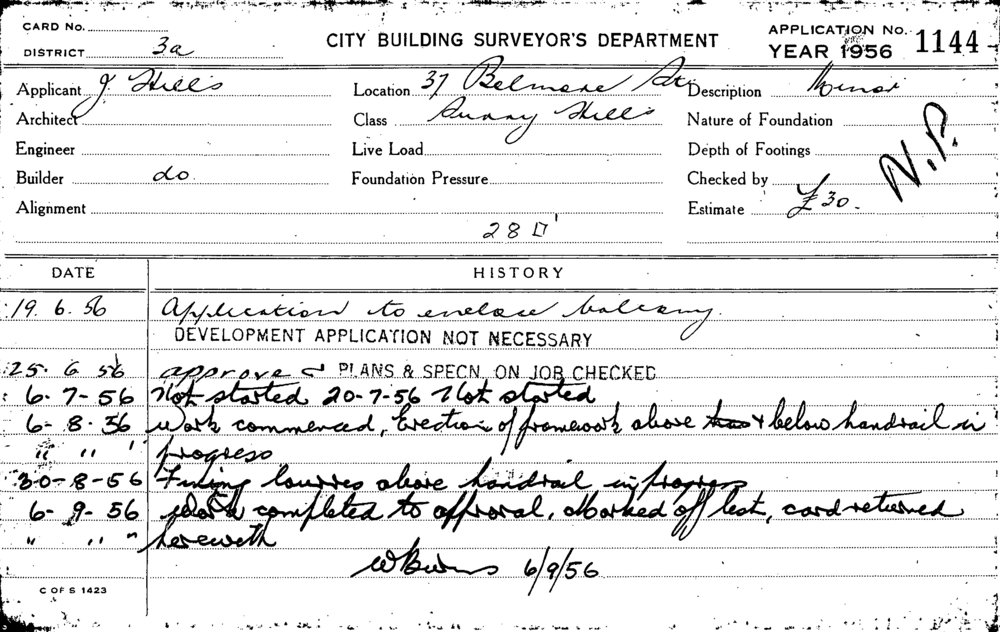 CARD No.
DISTRICT 3a
CITY BUILDING SURVEYOR'S DEPARTMENT
APPLICATION No. 1144
YEAR 1956
Applicant J Hills Location 37 Belmore St Description Minor
Architect Class Surry Hills Nature of Foundation
Engineer Live Load Depth of Footings
Builder do. Foundation Pressure Checked by
N.P.
Alignment Estimate £30.
28 □'
DATE HISTORY
19. 6. 56 Application to enclose balcony.
DEVELOPMENT APPLICATION NOT NECESSARY
25. 6 56 approved PLANS & SPECN. ON JOB CHECKED
6-7-56 Not started 20-7-56 Not started
6-8-56 Work commenced, Erection of framework above & below handrail in
" " " progress
30-8-56 Fixing louvres above handrail in progress
6-9-56 Work completed to approval, Marked off list, card returned
" " " herewith
6/9/56
C OF S 1423